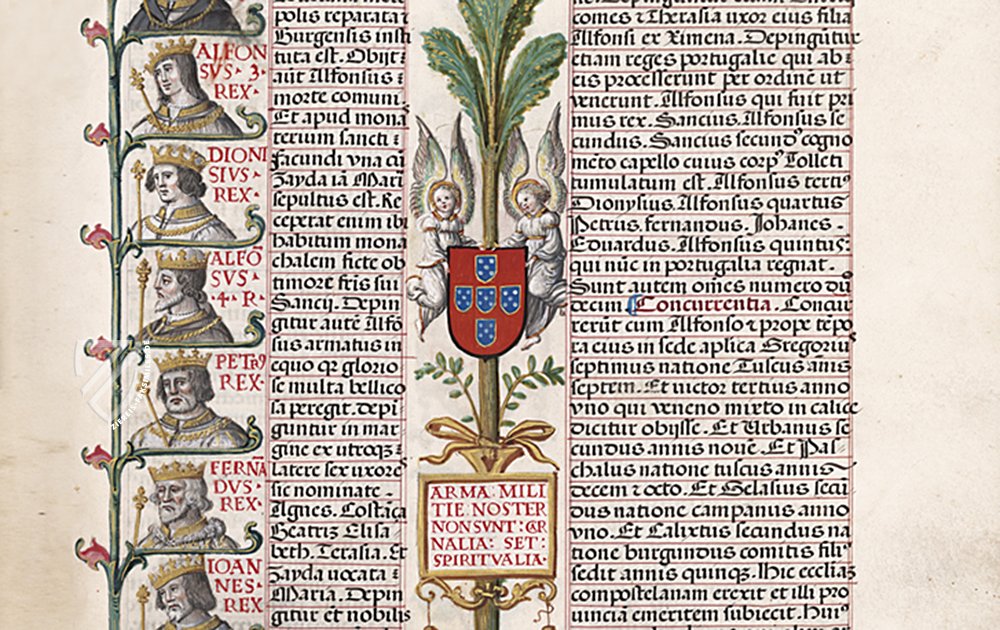 ALFON
SVS · 3 ·
REX ·
DIONI
SIVS ·
REX ·
ALFŌ
SVS ·
· 4 · R ·
PETꝰ
REX ·
FERNĀ
DVS ·
REX ·
IOAN
NES ·
REX
polis reparata ⁊
Burgensis insti
tuta est. Obijt :
aūt Alfonsus :
morte comuni
Et apud mona
rerum sancti :
facundi vna cū
Zayda iā Mari
sepultus est. Re
ceperat enim ibi
habitum mona
chalem ficte ob
timore fr̄is sui
Sancii. Depin
gitur autē Alfō
sus armatus in
equo qr̄ glorio
se multa bellico
sa peregit. depī
guntur in mar
gine ex utroqȝ
latere sex uxores
sic nominate ·
Agnes. Costāca
Beatrix Elisa
beth. Terasia. Et
Zayda uocata :
Maria. Depin
gitur et nobilis
ARMA : MILI
TIE NOSTER
NON SVNT : CAR
NALIA : SET :
SPIRITVALIA ·
comes ⁊ Therasia uxor eius filia
Alfonsi ex Ximena. Depingūtur
etiam reges portugalie qui ab :
eis processerunt per ordinē ut
venerunt. Alfonsus qui fuit pri
mus rex. Sancius. Alfonsus se
cundus. Sancius secundꝰ cogno
mēto capello cuius corpꝰ Tolleti
tumulatum est. Alfonsus tertiꝰ
Dionysius. Alfonsus quartus
Petrus. fernandus. Johanes ·
Eduardus. Alfonsus quintus :
qui nūc in portugalia regnat.
Sunt autem om̄es numero duo
decim Concurrentia. Concur
rerūt cum Alfonso ⁊ prope tēpo
ra eius in sede aplica Gregoriꝰ
septimus natione Tuscus anis
septem. Et victor tertius anno
vno qui veneno mixto in calice
dicitur obijsse. Et Urbanus se
cundus annis nouē. Et Pas
chalus natione tuscus annis
decem ⁊ octo. Et Gelasius secū
dus natione campanus anno
vno. Et Calixtus secundus na
tione burgundus comitis filiꝰ
sedit annis quinqȝ. Hic eccliaȝ
compostelanam erexit et illi pro
uinciā emeritem subiecit. Huiꝰ